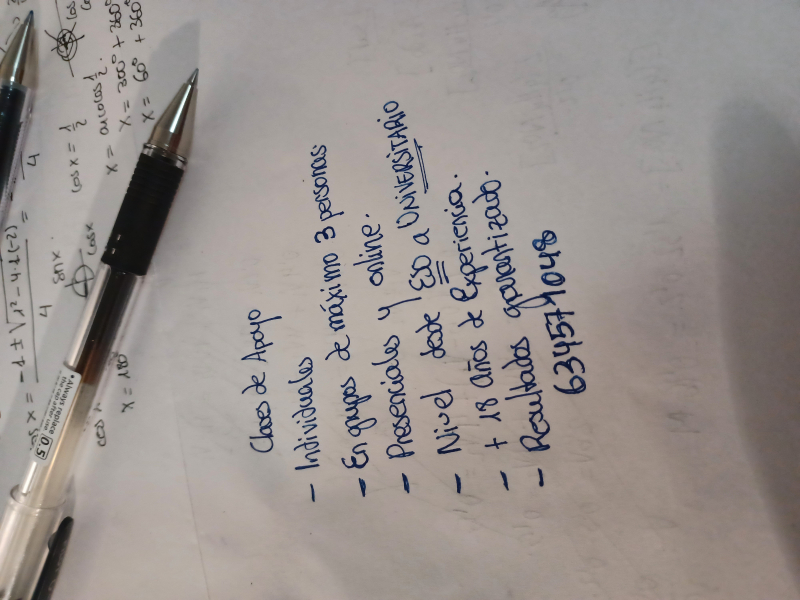 Clases de Apoyo
- Individuales
- En grupos de máximo 3 personas
- Presenciales y online.
- Nivel desde ESO a UNIVERSITARIO
- + 18 Años de Experiencia.
- Resultados garantizado.
634571048
x = -1 ± √1² - 4·1·(-2)
4
4
sin x
cos x
cos x = 1/2
x = arccos 1/2
x = 300° + 360°
x = 60° + 360°
x = 180°
cos x
•Always replace
the cap after use
0.5